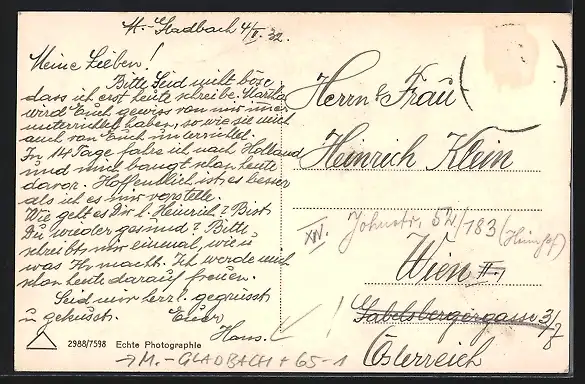 M.-Gladbach 4/II. 32.
Meine Lieben!
Bitte seid nicht böse,
dass ich erst heute schreibe. Martha
wird Euch gewiss von mir immer
unterrichtet haben, so wie sie mich
auch von Euch unterrichtet.
In 14 Tage fahre ich nach Holland
und mich bangt schon heute
davor. Hoffentlich ist es besser
als ich es mir vorstelle.
Wie geht es Dir l. Heinrich? Bist
Du wieder gesund? Bitte
schreibt mir einmal, wie u
was Ihr macht. Ich werde mich
schon heute darauf freuen.
Seid nur herzl. gegrüsst
u geküsst. Euer
Hans.
Herrn & Frau
Heinrich Klein
XIV. Johnstr. 52/183 (Heimhof)
Wien II.
Gabelsbergergasse 3/7
8
Österreich
2988/7598 Echte Photographie
→ M.-GLADBACH + 65-1